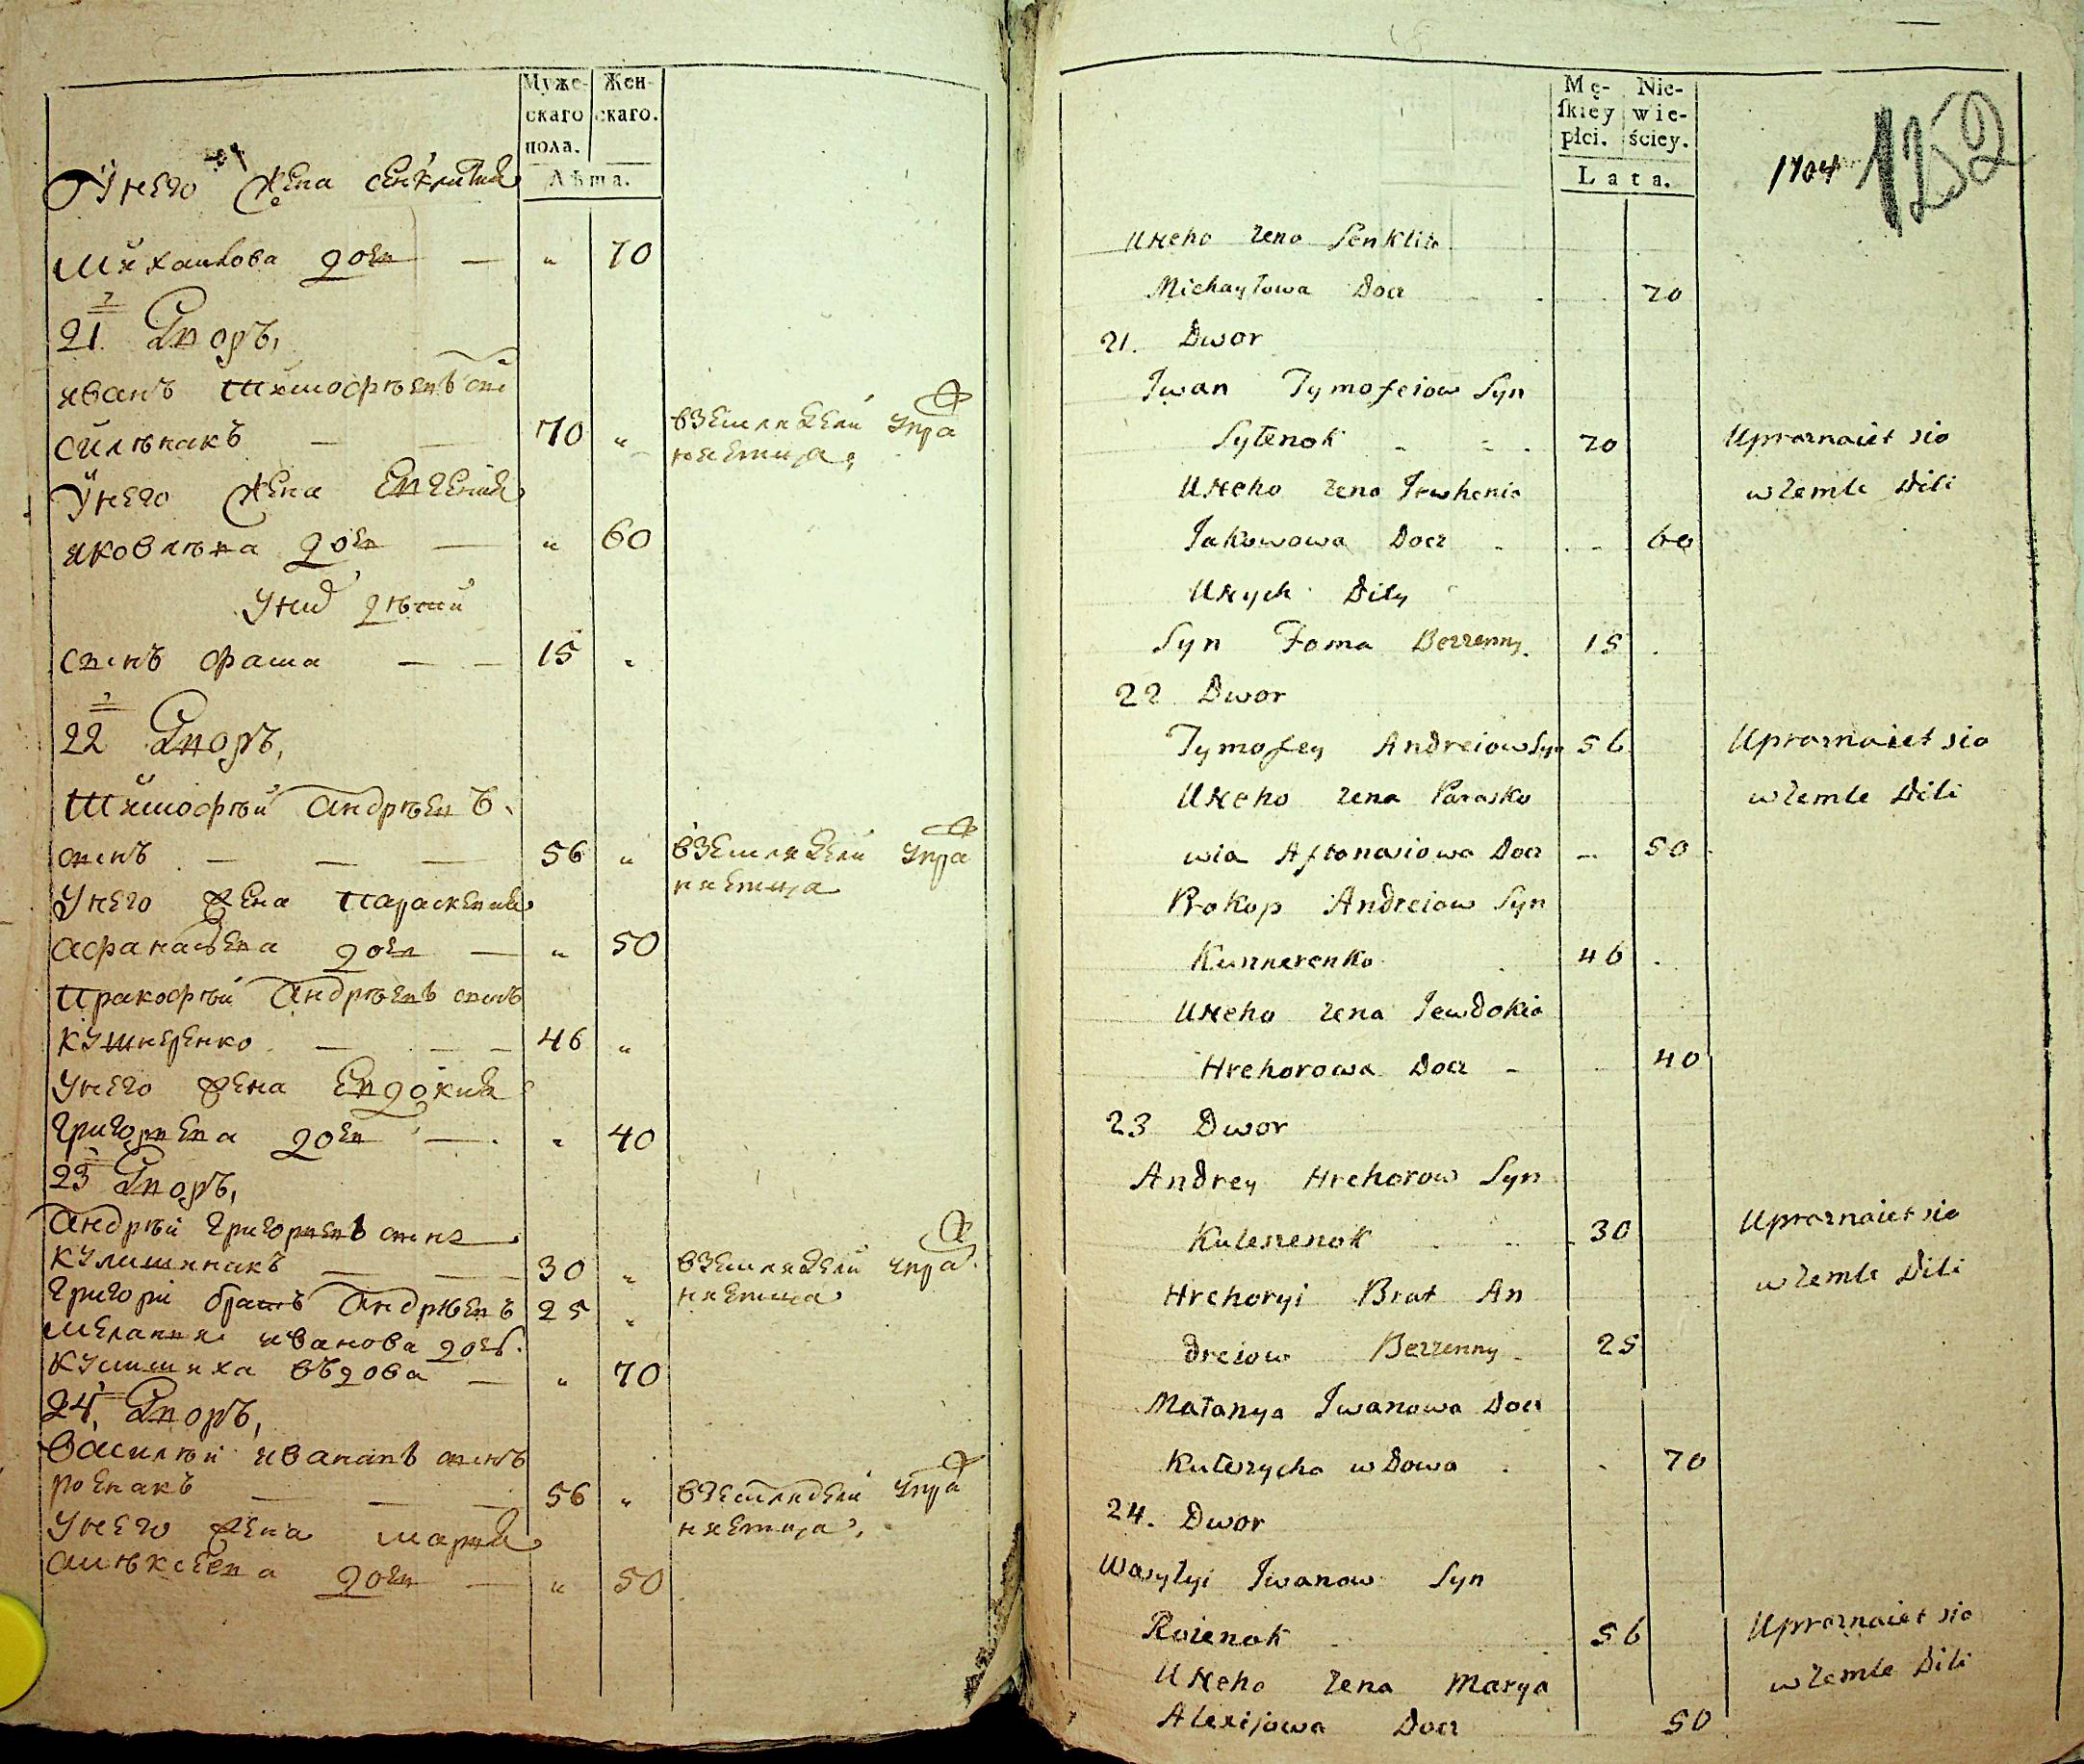 Муже-
скаго
пола.
Жен-
скаго.
Лѣта.
Унего жена сенклития
Михаилова дочь — " 70
21. Дворъ,
иванъ тимофѣевъ сынъ
силѣнакъ — — 70 " вземледели упра
няетца,
Унего жена Евгения
яковлѣва дочь — " 60
Уних дѣтей
сынъ фама — — 15 "
22 Дворъ,
Тимофѣй андрѣевъ
сынъ — — — 56 " вземледели упра
няетца
Унего жена параскевия
афанасьева дочь — " 50
пракофѣй андрѣевъ сынъ
кушнеренко — — — 46 "
Унего жена Евдокия
григорьева дочь — " 40
23 Дворъ,
андрѣй григорьевъ сынъ
кулишинакъ — — 30 " вземледели упра
няетца
григори братъ андрѣевъ 25 "
мелания иванова дочь
въдова — " 70
24, Дворъ,
василѣй ивановъ сынъ
роенакъ — — — 56 " вземледели упра
няетца,
Унего жена мария
алѣксеева дочь — " 50
Mę-
ſkiey
płci.
Nie-
wie-
ściey.
Lata.
1704 152
Uneho zena Senklita
Michayłowa Docz 70
21. Dwor
Iwan Tymofeiow Syn
Sylenok 70 Uprarnaiet sia
w zemle Dili
Uneho zena Iewhenia
Jakowowa Docz 60
Unych Dity
Syn Foma Bezzenny. 15
22 Dwor
Tymofey Andreiow Syn 56 Uprarnaiet sia
w zemle Dili
Uneho zena Parasko
wia Aftanasiowa Docz 50
Prokop Andreiow Syn
Kusznerenko 46
Uneho zena Iewdokia
Hrehorowa Docz 40
23 Dwor
Andrey Hrehorow Syn
Kuleszenok 30 Uprarnaiet sia
w zemle Dili
Hrehoryi Brat An
dreiow Bezzenny 25
Małanya Iwanowa Docz
Kulszycha wdowa 70
24. Dwor
Wasylyi Iwanow Syn
Roienok 56 Uprarnaiet sia
w zemle Dili
Uneho zena Marya
Alexijowa Docz 50